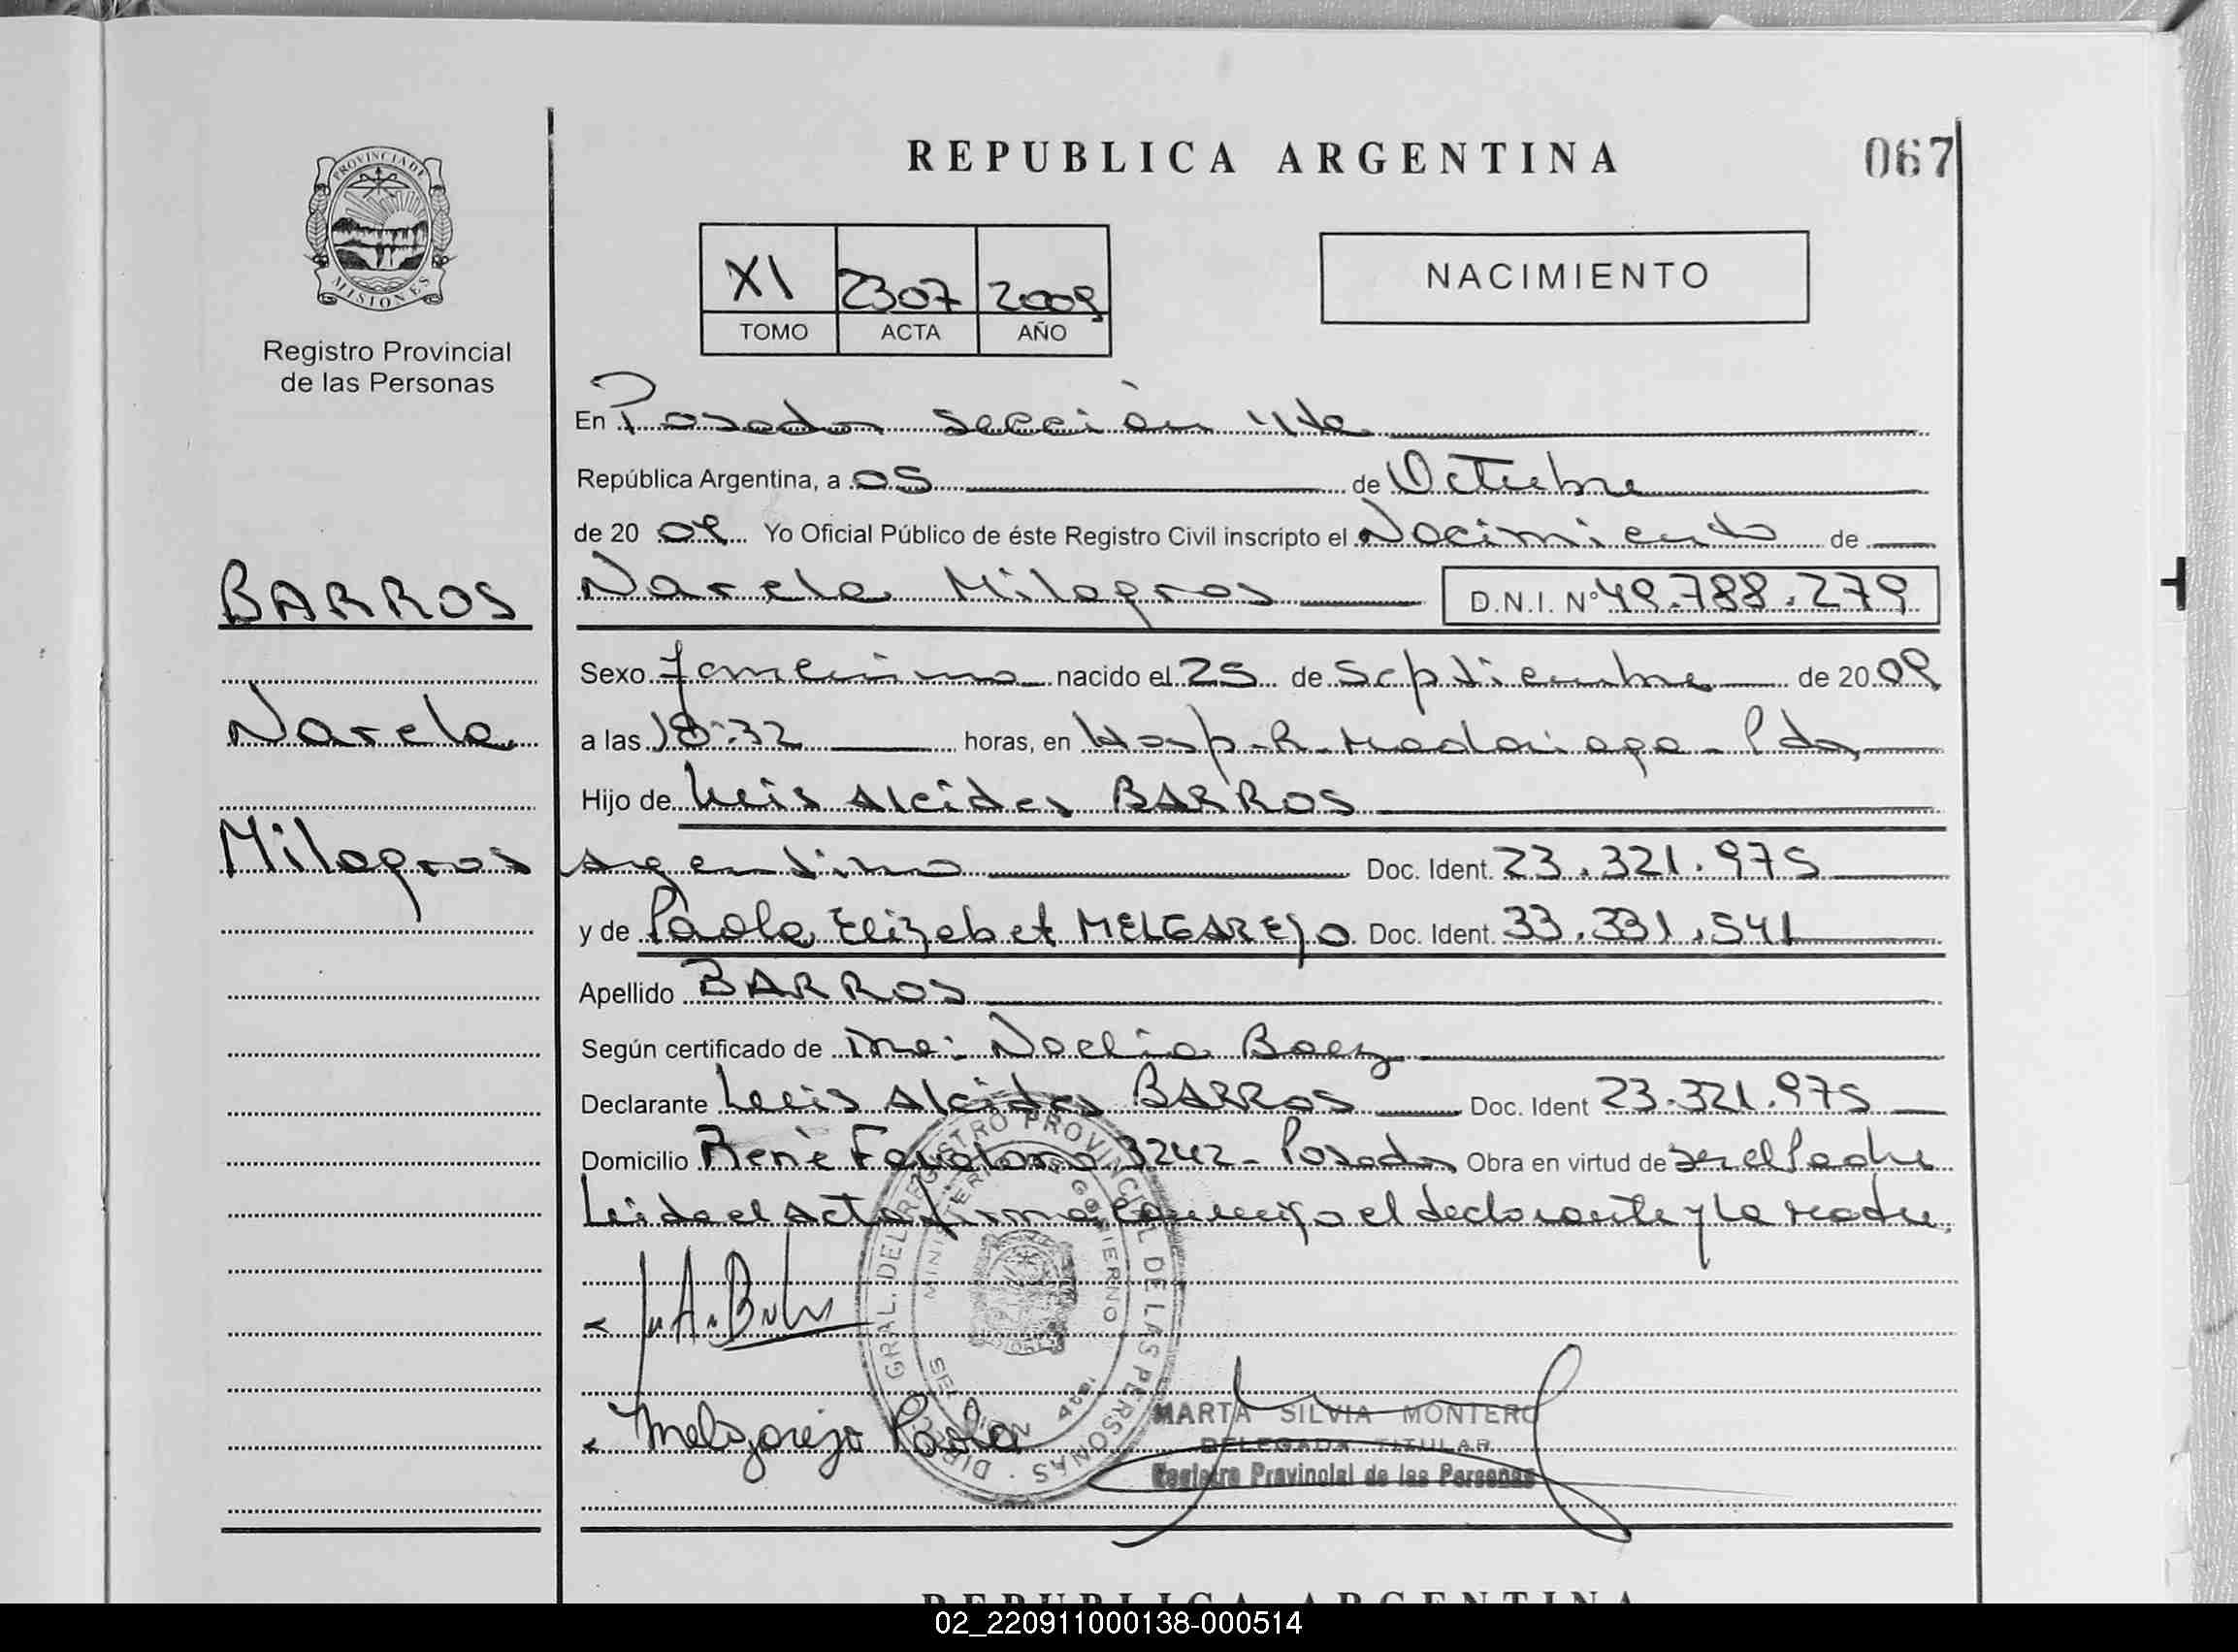 REPUBLICA ARGENTINA
067
PROVINCIA DE
MISIONES
Registro Provincial
de las Personas
XI 2307 2009
TOMO ACTA AÑO
NACIMIENTO
En Posadas sección 4ta
República Argentina, a 05 de Octubre
de 20 09 Yo Oficial Público de éste Registro Civil inscripto el Nacimiento de
BARROS
Narela
Milagros
Narela Milagros D.N.I. Nº 49.788.279
Sexo femenino nacido el 25 de Septiembre de 20 09
a las 18:32 horas, en Hosp. R. Madariaga - Pdas
Hijo de Luis Alcides BARROS
Argentino Doc. Ident. 23.321.975
y de Paola Elizabet MELGAREJO Doc. Ident. 33.331.541
Apellido BARROS
Según certificado de Noelia Baez
Declarante Luis Alcides BARROS Doc. Ident 23.321.975
Domicilio René 3242 - Posadas Obra en virtud de ser el Padre
Leida el Acta firma conmigo el declarante y la madre.
DIRECCION GRAL. DEL REGISTRO PROVINCIAL DE LAS PERSONAS
MINISTERIO DE GOBIERNO
SECCION 4ta
Melgarejo Paola
MARTA SILVIA MONTERO
DELEGADA TITULAR
Registro Provincial de las Personas
REPUBLICA ARGENTINA
02_220911000138-000514